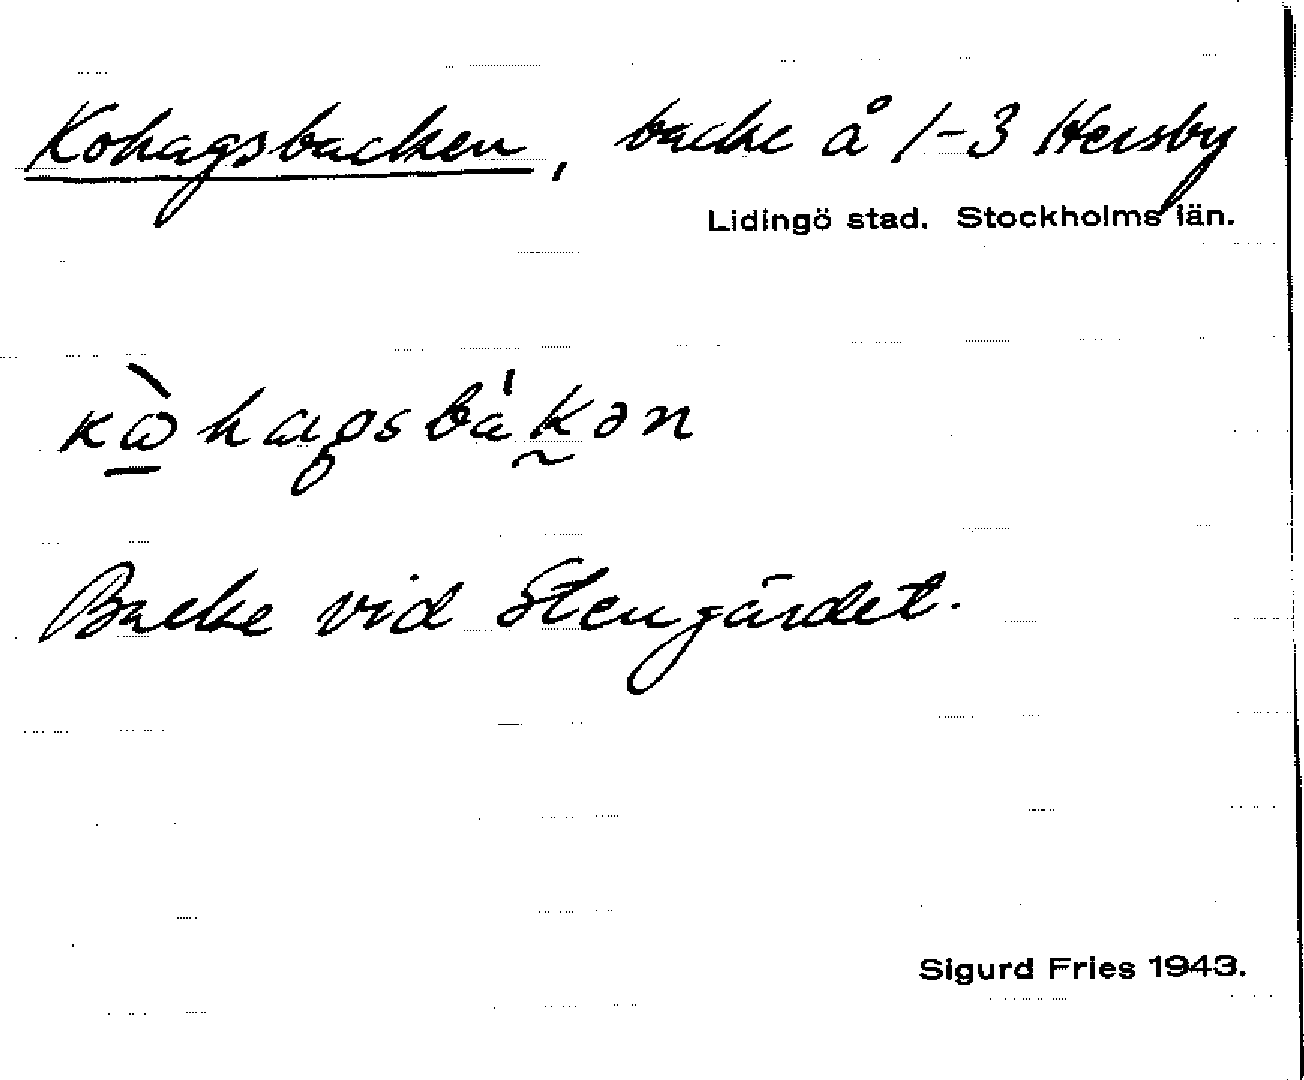 Kohagsbacken, backe å 1-3 Hersby
Lidingö stad. Stockholms län.
kὼ̠hagsbȧk̰ən
Backe vid Stengärdet.
Sigurd Fries 1943.